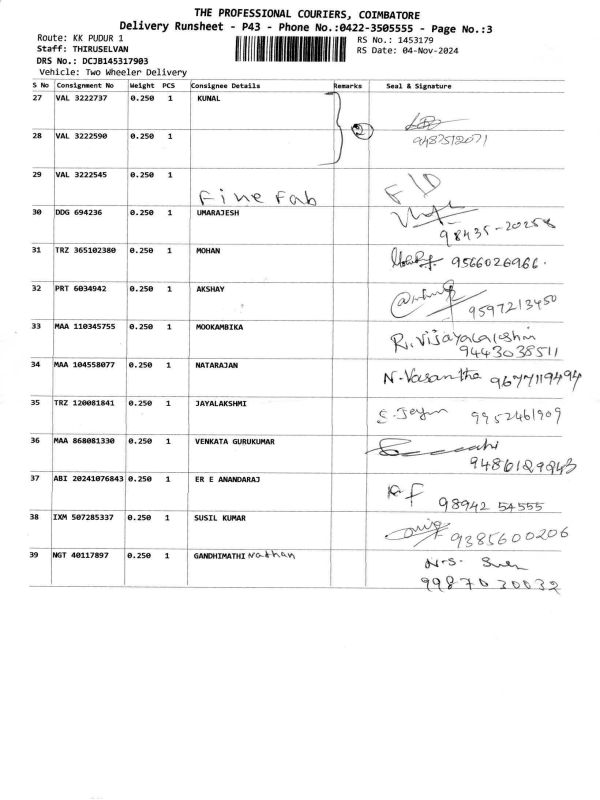 THE PROFESSIONAL COURIERS, COIMBATORE
Delivery Runsheet - P43 - Phone No.:0422-3505555 - Page No.:3
Route: KK PUDUR 1 RS No.: 1453179
Staff: THIRUSELVAN RS Date: 04-Nov-2024
DRS No.: DCJB145317903
Vehicle: Two Wheeler Delivery
S No Consignment No Weight PCS Consignee Details Remarks Seal & Signature
27 VAL 3222737 0.250 1 KUNAL
2
28 VAL 3222590 0.250 1
9487512071
29 VAL 3222545 0.250 1
Fine Fab F/D
30 DDG 694236 0.250 1 UMARAJESH
98435-20258
31 TRZ 365102380 0.250 1 MOHAN
9566026966.
32 PRT 6034942 0.250 1 AKSHAY
9597213450
33 MAA 110345755 0.250 1 MOOKAMBIKA
R. Vijayalakshmi
9443038511
34 MAA 104558077 0.250 1 NATARAJAN
N. Vasantha 9677119494
35 TRZ 120081841 0.250 1 JAYALAKSHMI
9952461909
36 MAA 868081330 0.250 1 VENKATA GURUKUMAR
9486129243
37 ABI 20241076843 0.250 1 ER E ANANDARAJ
98942 54555
38 IXM 507285337 0.250 1 SUSIL KUMAR
9385600206
39 NGT 40117897 0.250 1 GANDHIMATHI Nathan
N.S.
99870 30032